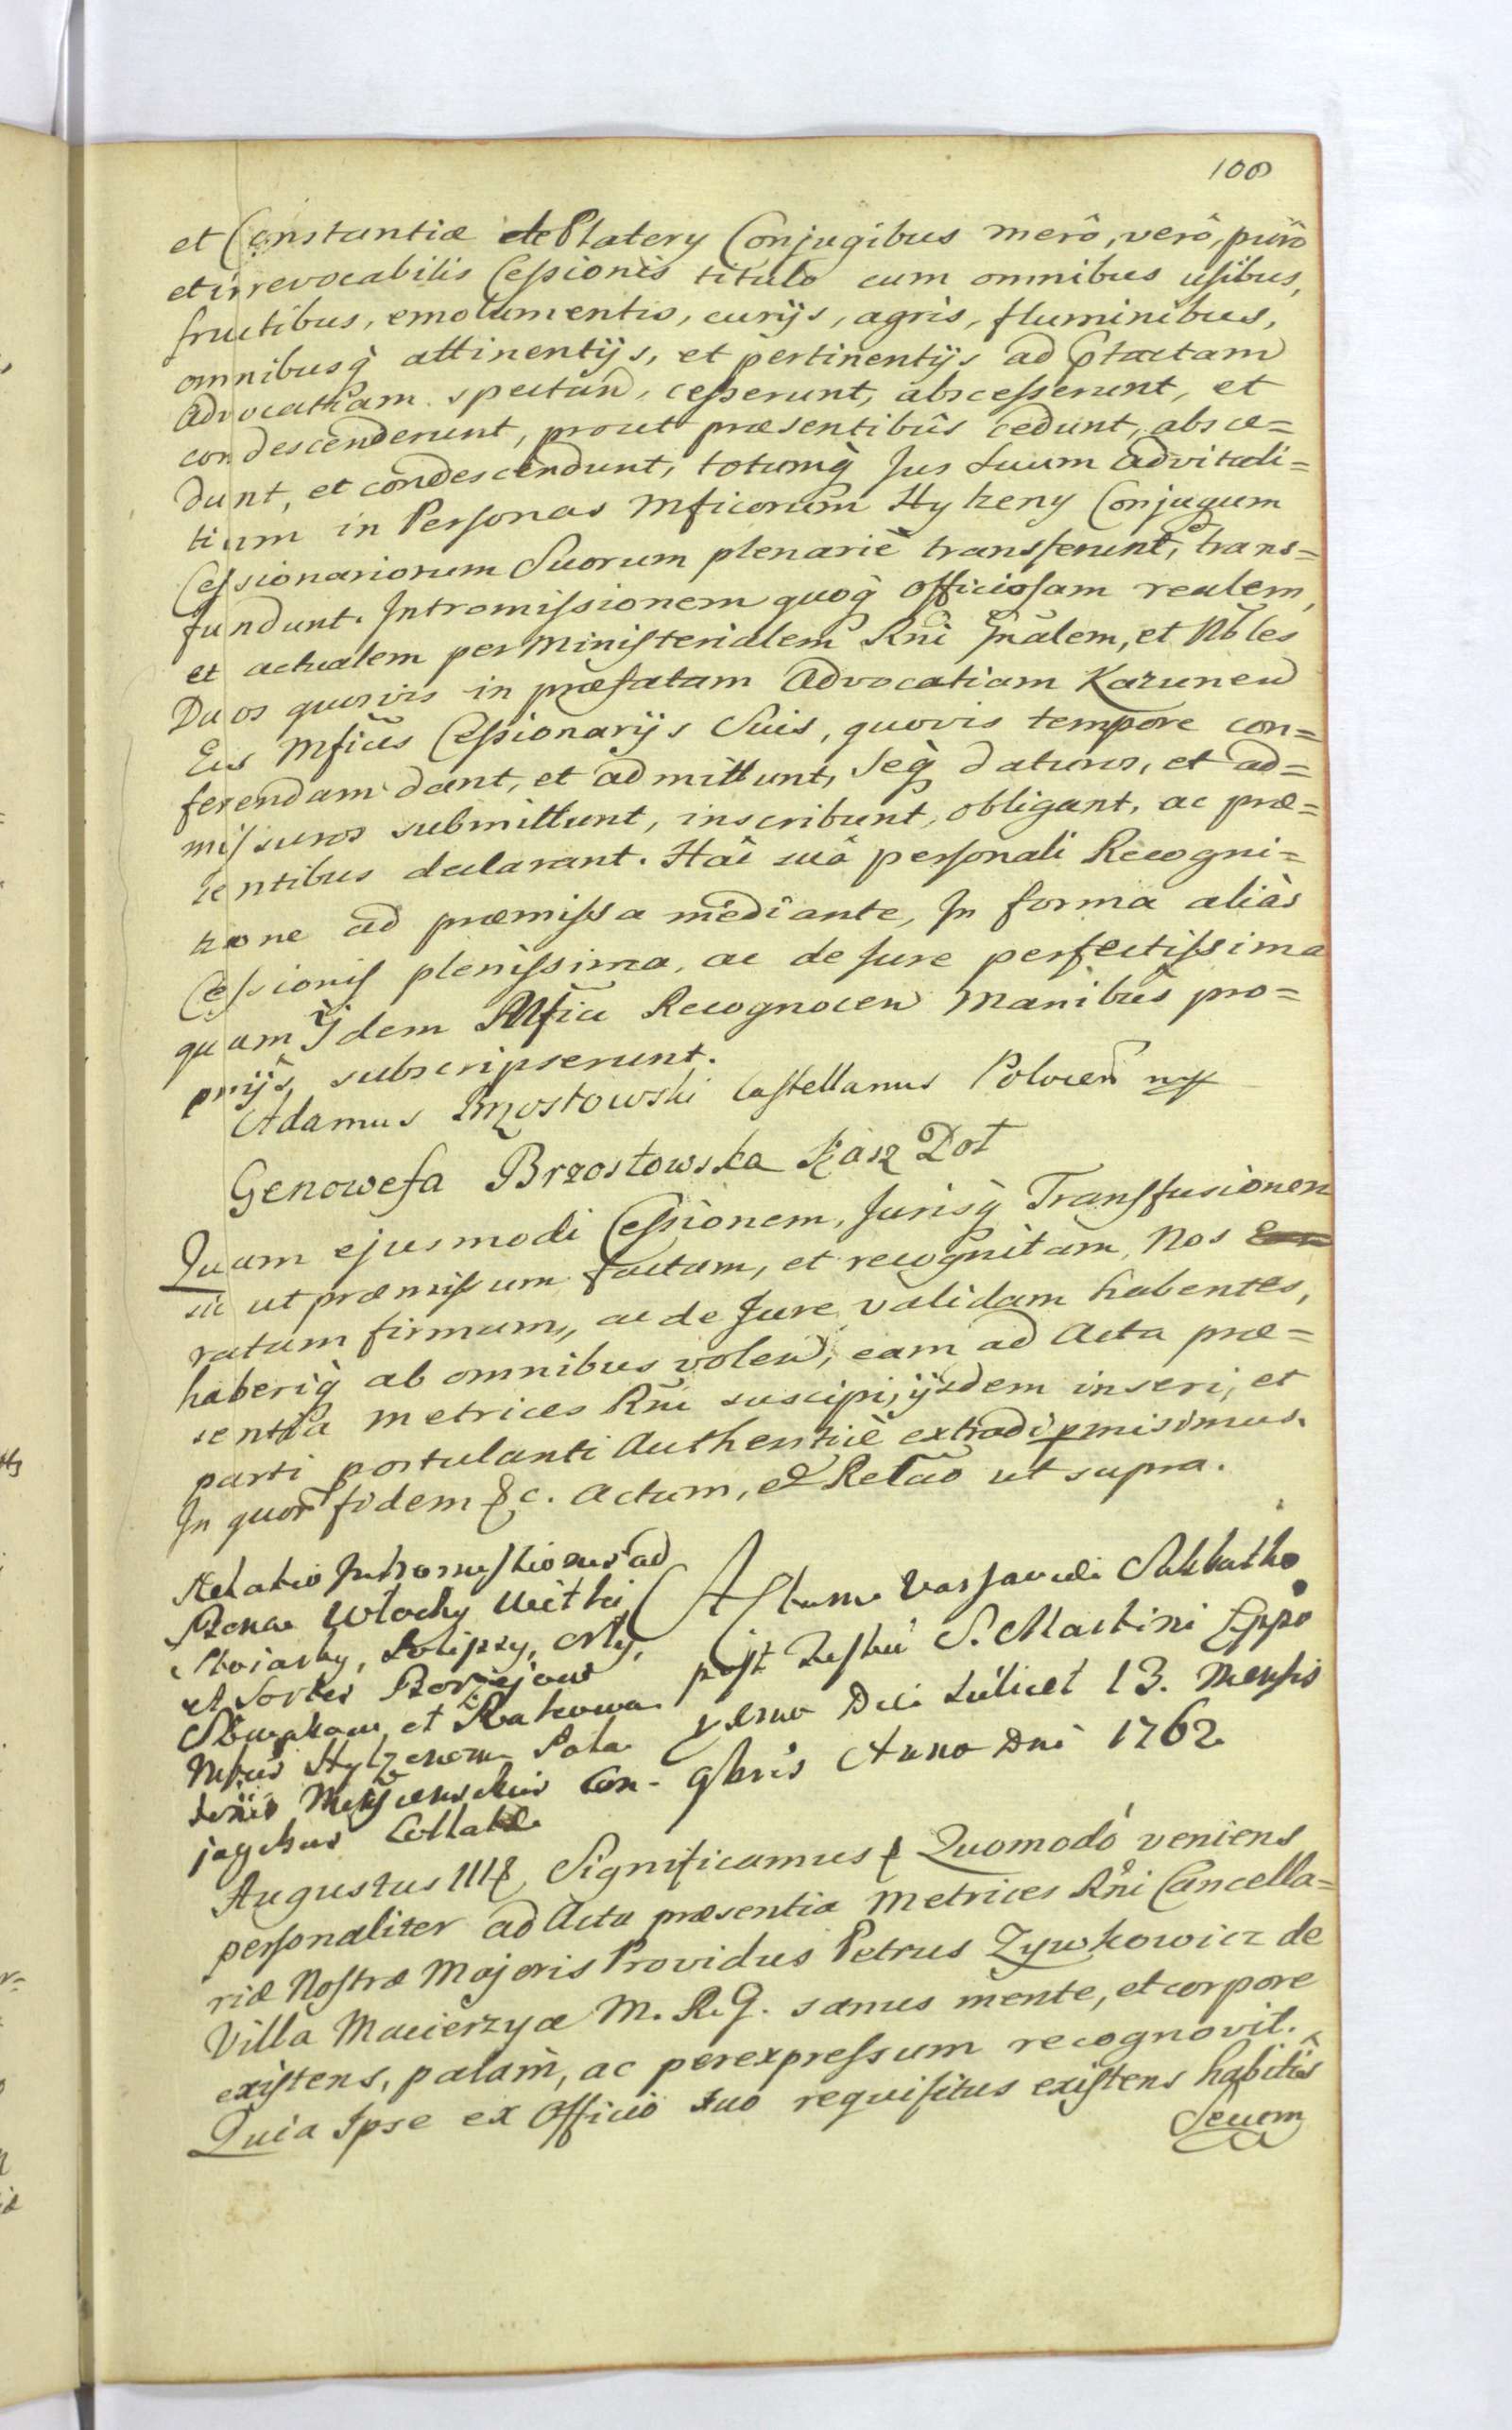 100
et Constantiæ de Platery Conjugibus merô, verô, purô
et irrevocabilis Cessionis titulo cum omnibus usibus,
fructibus, emolumentis, curijs, agris, fluminibus,
omnibusq̀ attinentijs, et pertinentijs ad Ptactam
Advocatiam spectan̄, cesserunt, abscesserunt, et
condescenderunt, prout præsentibus cedunt, absce=
dunt, et condescendunt, totumq̀ Jus Suum Advitali=
tium in Personas Mficorum Hylzeny Conjugum
Cessionariorum Suorum plenariè transferunt, et trans=
fundunt. Intromissionem quoq̀ officiosam realem,
et actualem per Ministerialem Rni Gnalem, et Nbles
Duos quosvis in præfatam Advocatiam Kazunen
Eis Mficis Cessionarijs Suis, quovis tempore con=
ferendam dant, et admittunt, seq̀ daturos, et ad=
missuros submittunt, inscribunt, obligant, ac præ=
sentibus declarant. Hâc suâ personali Recogni=
tione ad præmissa mediante, In forma aliàs
Cessionis plenissima, ac de Jure perfectissima
quam Ijdem Mfici Recognoscen Manibus pro=
prijs subscripserunt.
Adamus Brzostowski Castellanus Polocen̄ mp
Genowefa Brzostowska Kasz Pot
Quam ejusmodi Cessionem, Jurisq̀ Transfusionem
sic ut præmissum factam, et recognitam, Nos
ratam firmam, ac de Jure validam habentes,
haberiq̀ ab omnibus volen, eam ad Acta præ=
sentia Metrices Rni suscipi, ijsdem inseri, et
parti postulanti Authenticè extradi pmisimus.
In quor̄ fidem &c. Actum, et Relao ut supra.
Relatio Intromissionis ad
Bona Włochy
Stoiarty, Solipsy,
et Sortes
et Rakowa
Mficis Hylzenom Pala
Con-
jugibus Collatæ
Actum Varsaviæ Sabbatho
post Festum S. Martini Eppo
ximo Die scilicet 13. Mensis
9bris Anno Dni 1762
Augustus III& Significamus & Quomodò veniens
personaliter ad Acta præsentia Metrices Rni Cancella=
riæ Nostræ Majoris Providus Petrus Zywkowicz de
Villa Macierzyæ M. R. G. sanus mente, et corpore
existens, palàm, ac per expressum recognovit.
Quia Ipse ex Officio suo requisitus existens habitis
Secum